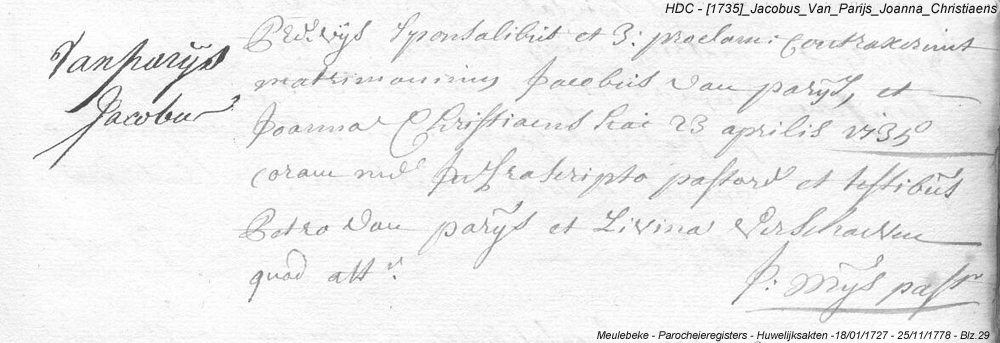 HDC - [1735]_Jacobus_Van_Parijs_Joanna_Christiaens
Van parijs
Jacobus
Prævijs Sponsalibus et 3: proclam: Contraxerunt
matrimonium Jacobus Van parijs, et
Joanna Christiaens hac 23 aprilis 1735
coram me Infrascripto pastore et testibus
Petro Van parijs et Livina Verschaeven
quod attr.
J: Mijs pastr
Meulebeke - Parocheieregisters - Huwelijksakten -18/01/1727 - 25/11/1778 - Blz.29